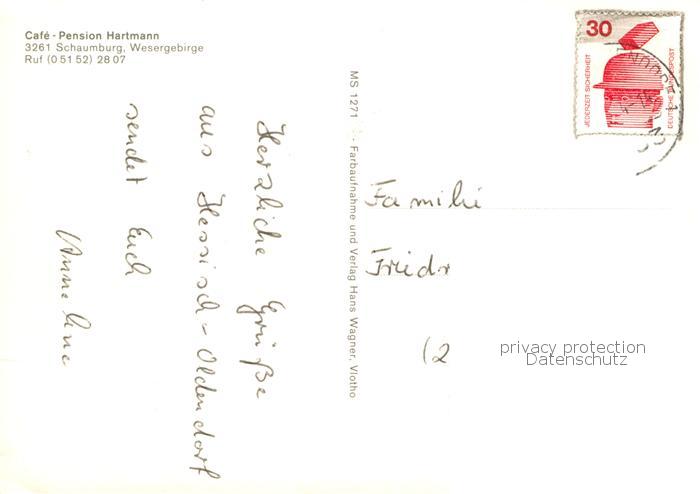 Café - Pension Hartmann
3261 Schaumburg, Wesergebirge
Ruf (0 51 52) 28 07
Herzliche Grüße
aus Hessisch-Oldendorf
sendet Euch
MS 1271 · Farbaufnahme und Verlag Hans Wagner, Vlotho
30
JEDERZEIT SICHERHEIT
DEUTSCHE BUNDESPOST
Familie
(2
privacy protection
Datenschutz